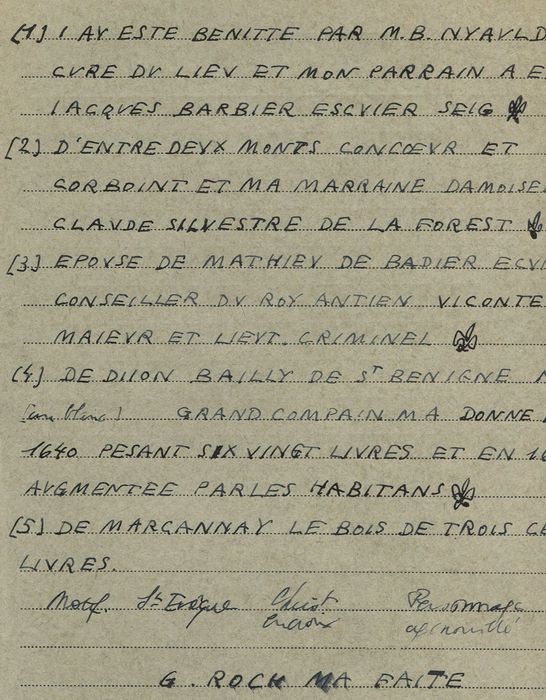 [1] I AY ESTE BENITTE PAR M.B. NYAULD
CVRE DV LIEV ET MON PARRAIN A E
IACQVES BARBIER ESCVIER SEIG
[2] D'ENTRE DEVX MONTS CONCŒVR ET
CORBOINT ET MA MARRAINE DAMOISE
CLAVDE SILVESTRE DE LA FOREST
[3] EPOVSE DE MATHIEV DE BADIER ECVI
CONSEILLER DV ROY ANTIEN VICONTE
MAIEVR ET LIEVT. CRIMINEL
[4] DE DIION BAILLY DE ST BENIGNE
[un blanc] GRAND COMPAIN M A DONNE
1640 PESANT SIX VINGT LIVRES ET EN 16
AVGMENTEE PAR LES HABITANS
[5] DE MARCANNAY LE BOIS DE TROIS CE
LIVRES.
Motif. St Evêque Christ Personnage
en croix agenouillé
G. ROCH MA FAITE